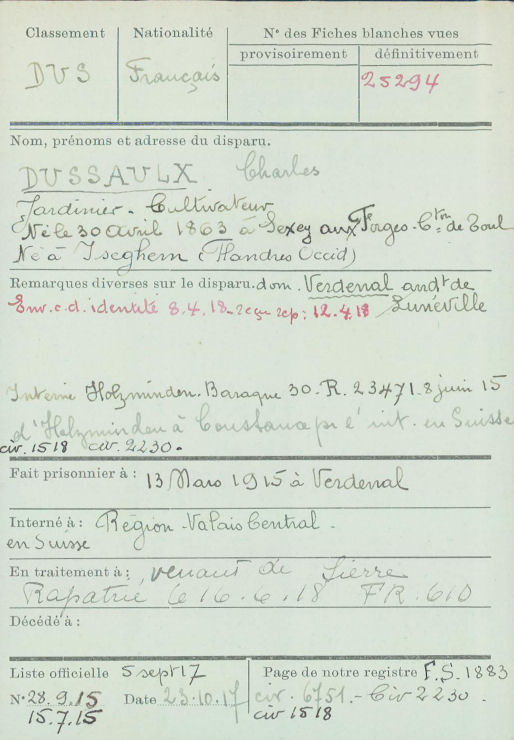 Classement
Nationalité
Nº des Fiches blanches vues
provisoirement
définitivement
DVS
Français
25294
Nom, prénoms et adresse du disparu.
DUSSAULX Charles
Jardinier - Cultivateur
Né le 30 Avril 1863 à Sexey aux Forges. Cton de Toul
Né à Iseghem (Flandres Occid)
Remarques diverses sur le disparu. dom. Verdenal andt de
Env. c. d. identité 8.4.18 - reçu rép: 12.4.18 Lunéville
Interné Holzminden. Baraque 30. R. 23471. 8 juin 15
d'Holzminden à Constance pr ê' int. en Suisse
civ. 1518 civ. 2230.
Fait prisonnier à : 13 Mars 1915 à Verdenal
Interné à : Région - Valais Central -
en Suisse
En traitement à : venant de Sierre
Rapatrié le 16.6.18 FR. 610
Décédé à :
Liste officielle 5 sept 17
Page de notre registre F.S. 1883
Nº 28.9.15 Date 23.10.17 civ. 6751. - Civ 2230.
15.7.15 civ 1518